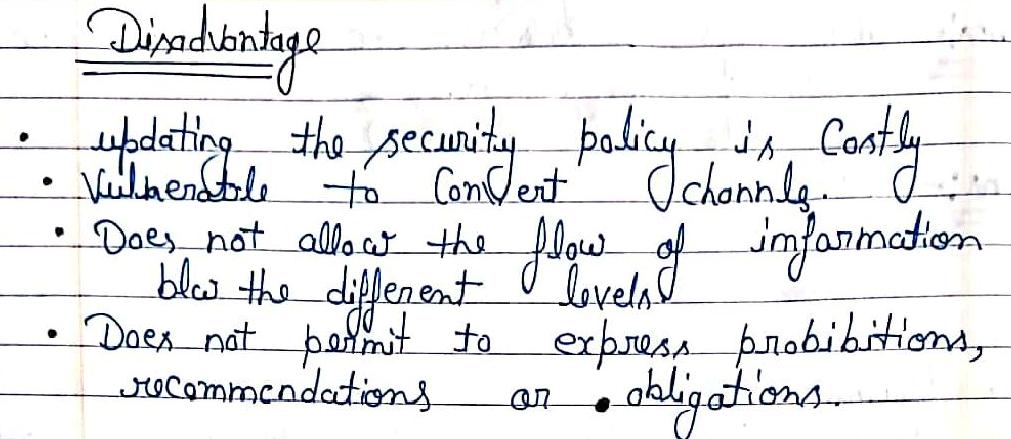 Disadvantage
• updating the security policy is Costly
• Vulnerable to Convert channels.
• Does not allow the flow of imformation
b/w the different levels
• Does not permit to express probibitions,
recommendations or • obligations.